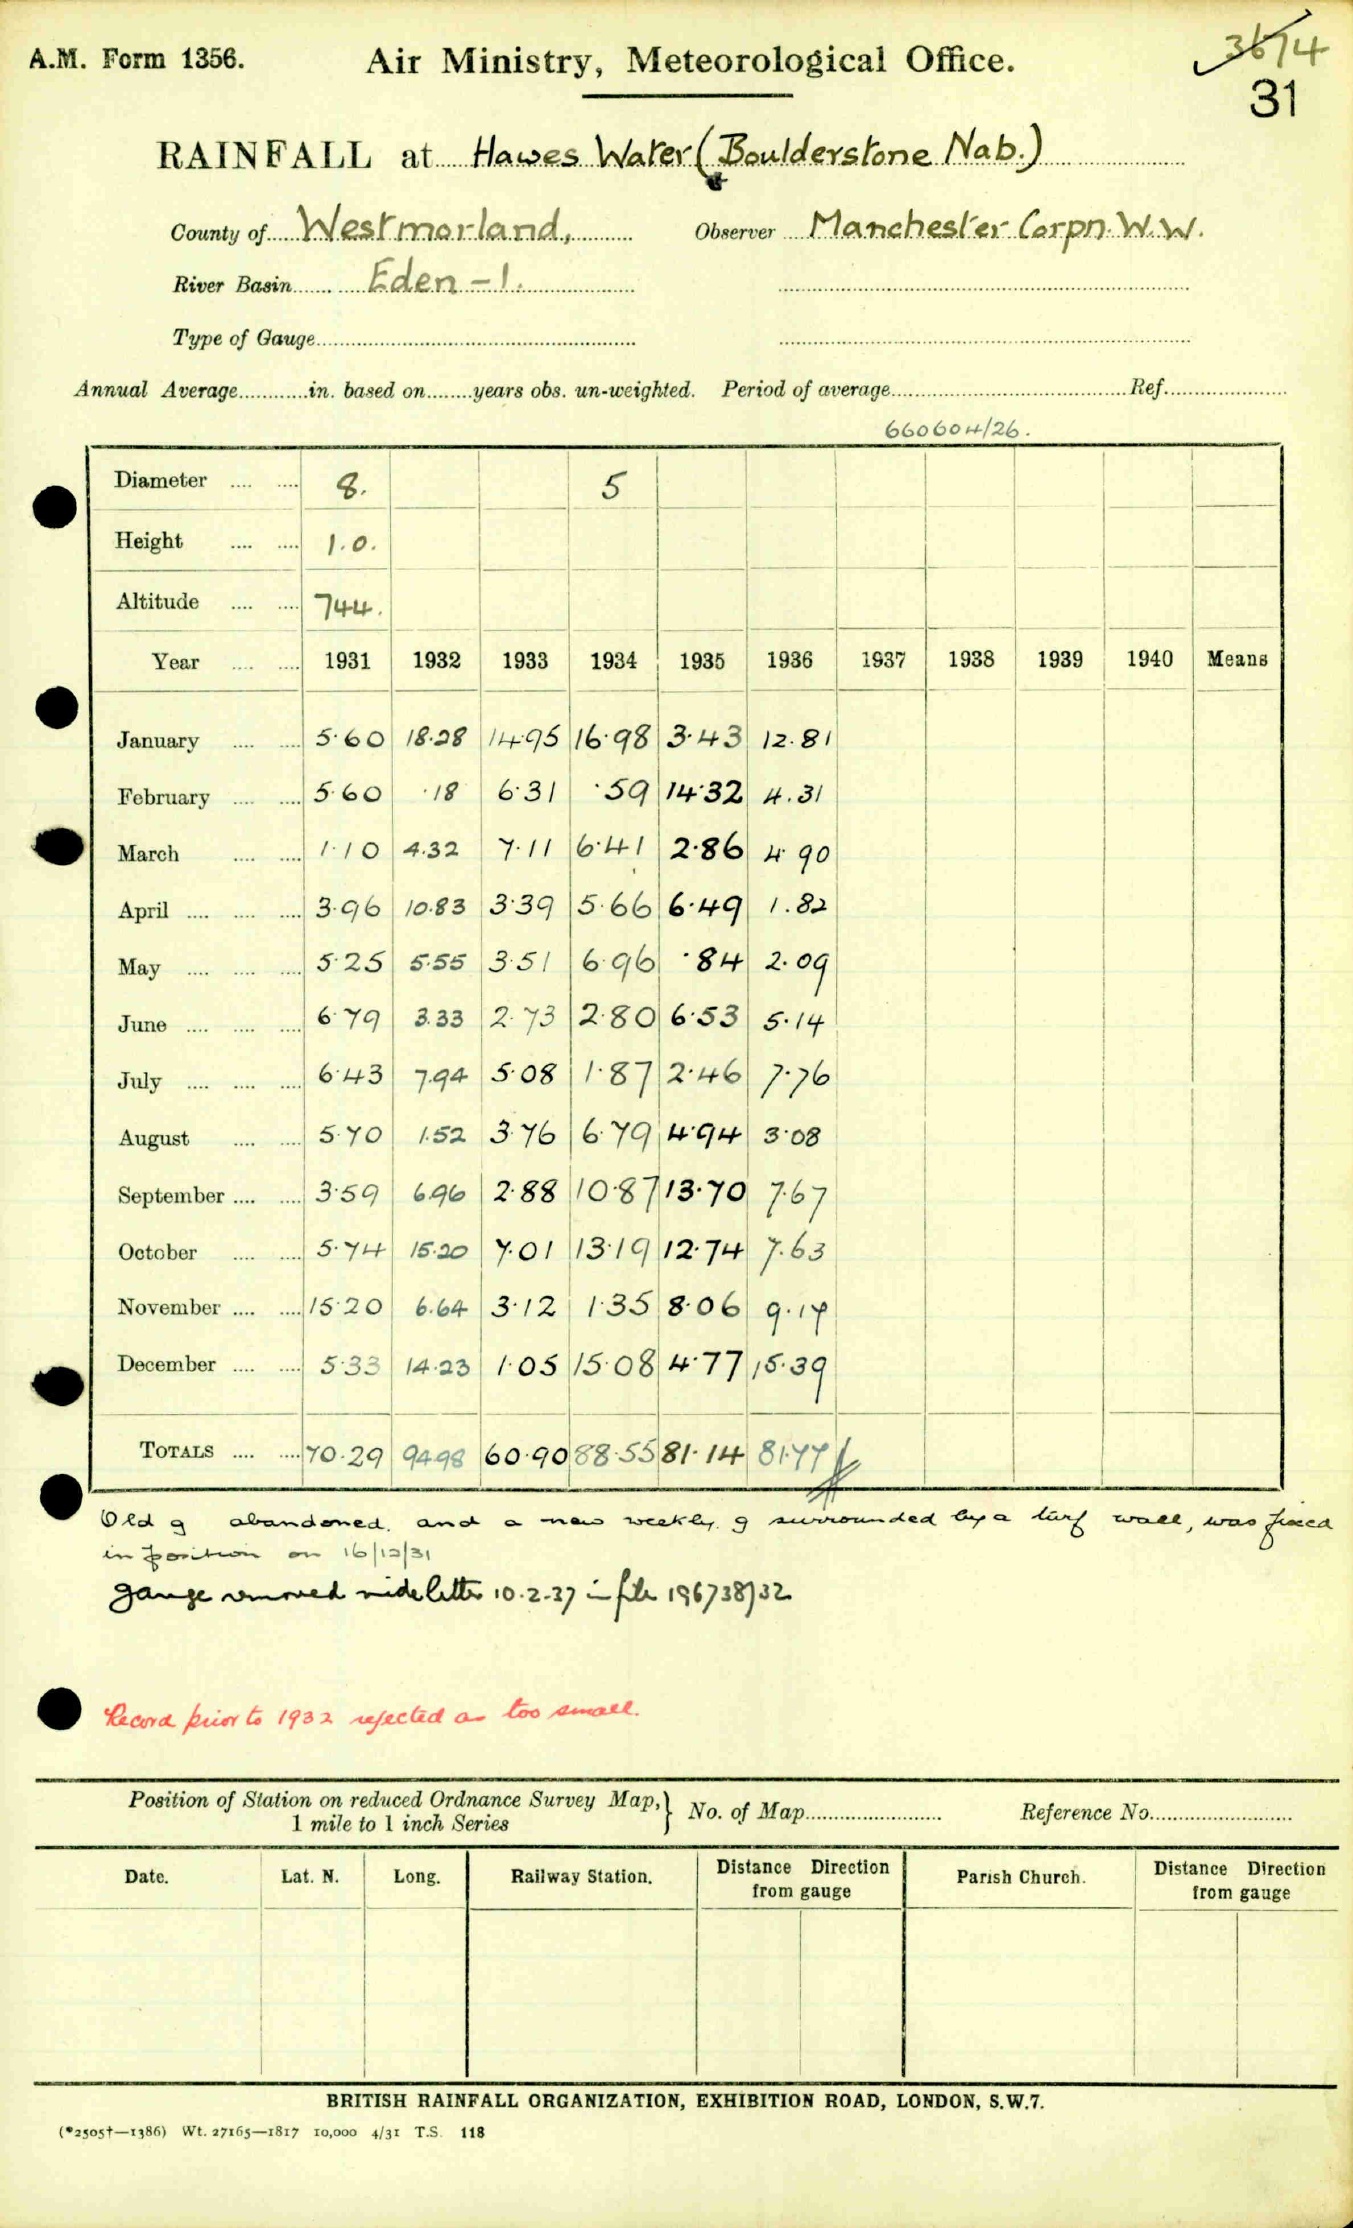 A.M. Form 1356.
Air Ministry, Meteorological Office.
3674
31
RAINFALL at Hawes Water (Boulderstone Nab.)
County of Westmorland, Observer Manchester Corpn. W.W.
River Basin Eden - 1.
Type of Gauge
Annual Average in. based on years obs. un-weighted. Period of average Ref.
660604/26.
Diameter 8. 5
Height 1.0.
Altitude 744.
Year 1931 1932 1933 1934 1935 1936 1937 1938 1939 1940 Means
January 5.60 18.28 14.95 16.98 3.43 12.81
February 5.60 .18 6.31 .59 14.32 4.31
March 1.10 4.32 7.11 6.41 2.86 4.90
April 3.96 10.83 3.39 5.66 6.49 1.82
May 5.25 5.55 3.51 6.96 .84 2.09
June 6.79 3.33 2.73 2.80 6.53 5.14
July 6.43 7.94 5.08 1.87 2.46 7.76
August 5.70 1.52 3.76 6.79 4.94 3.08
September 3.59 6.96 2.88 10.87 13.70 7.67
October 5.74 15.20 7.01 13.19 12.74 7.63
November 15.20 6.64 3.12 1.35 8.06 9.17
December 5.33 14.23 1.05 15.08 4.77 15.39
TOTALS 70.29 94.98 60.90 88.55 81.14 81.77
Old g abandoned. and a new weekly g surrounded by a turf wall, was fixed
in position on 16/12/31
gauge removed vide letter 10.2.37 in file 196738/32
Record prior to 1932 rejected as too small.
Position of Station on reduced Ordnance Survey Map, } No. of Map Reference No.
1 mile to 1 inch Series
Date. Lat. N. Long. Railway Station. Distance Direction from gauge Parish Church. Distance Direction from gauge
BRITISH RAINFALL ORGANIZATION, EXHIBITION ROAD, LONDON, S.W.7.
(*2505†—1386) Wt. 27165—1817 10,000 4/31 T.S. 118